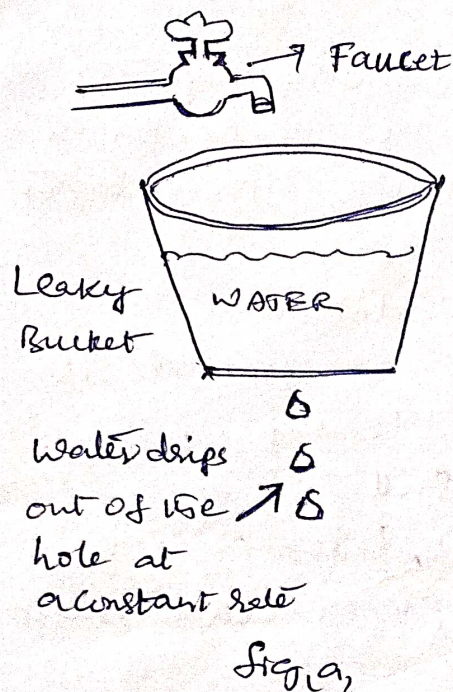 Faucet
Leaky
Bucket
WATER
Water drips
out of the
hole at
a constant rate
fig(a)